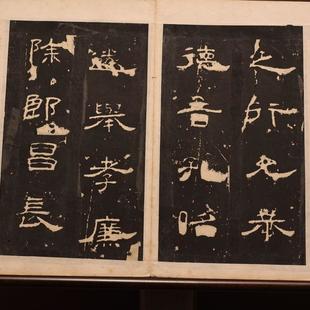 之行允恭
德音孔昭
遂舉孝廉
除郎昌長